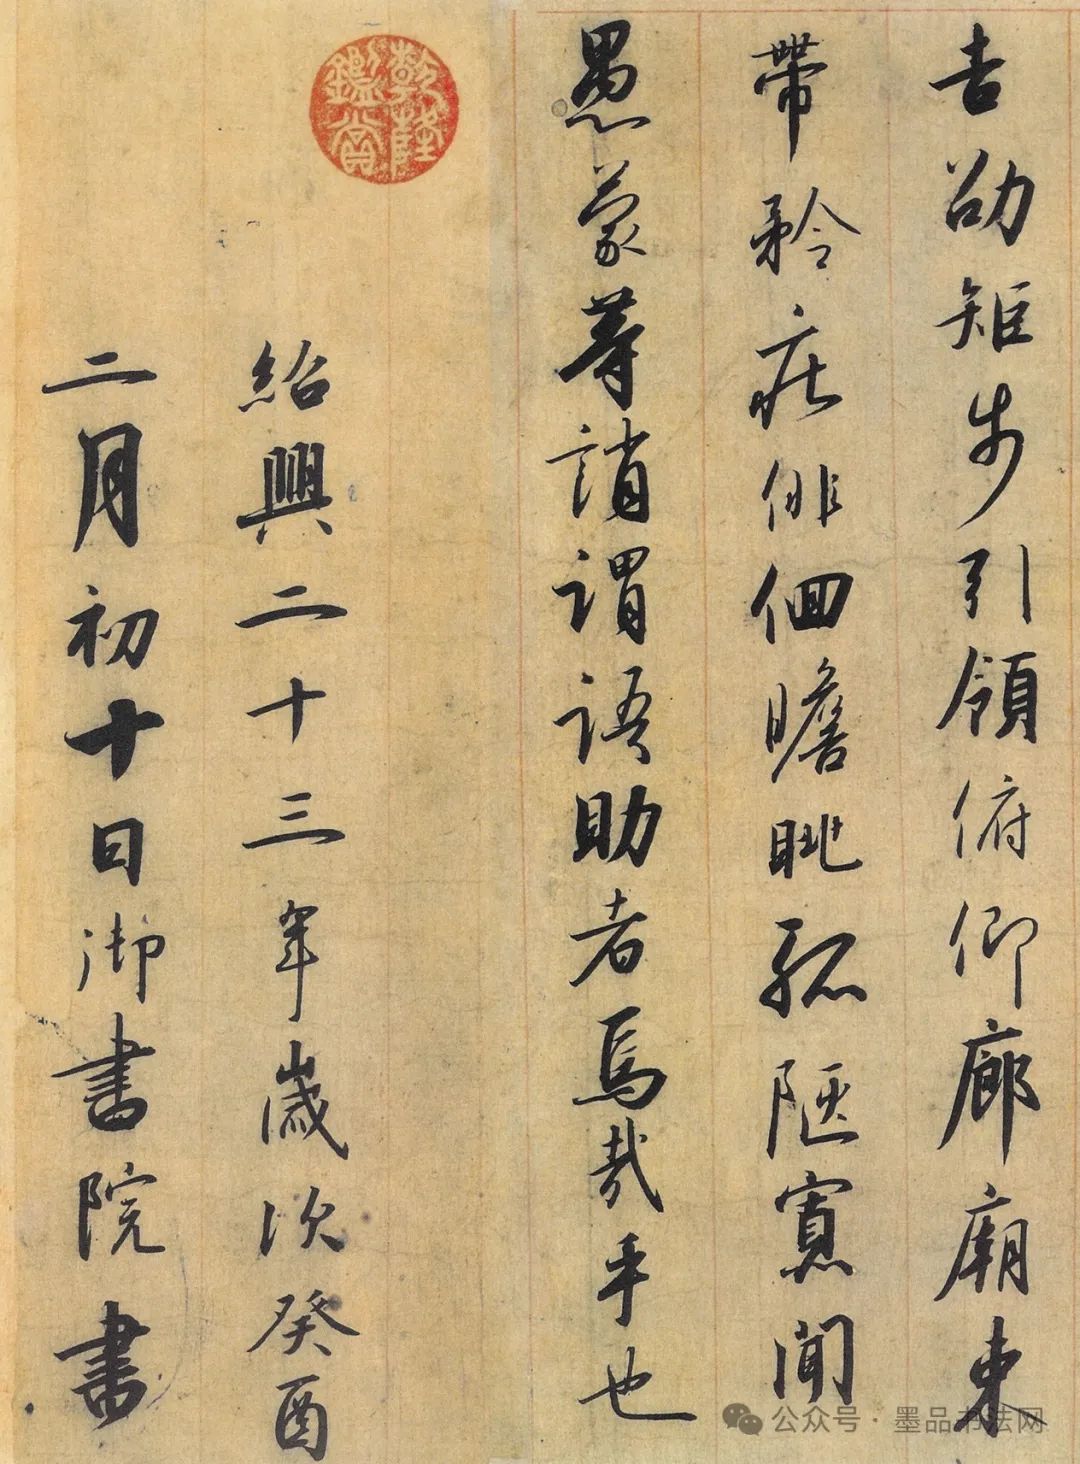 吉劭矩步引領俯仰廊廟束
帶矜莊俳佪瞻眺孤陋寡聞
愚蒙等誚謂語助者焉哉乎也
紹興二十三年歲次癸酉
二月初十日御書院書
乾隆鑑賞
公众号·墨品书法网